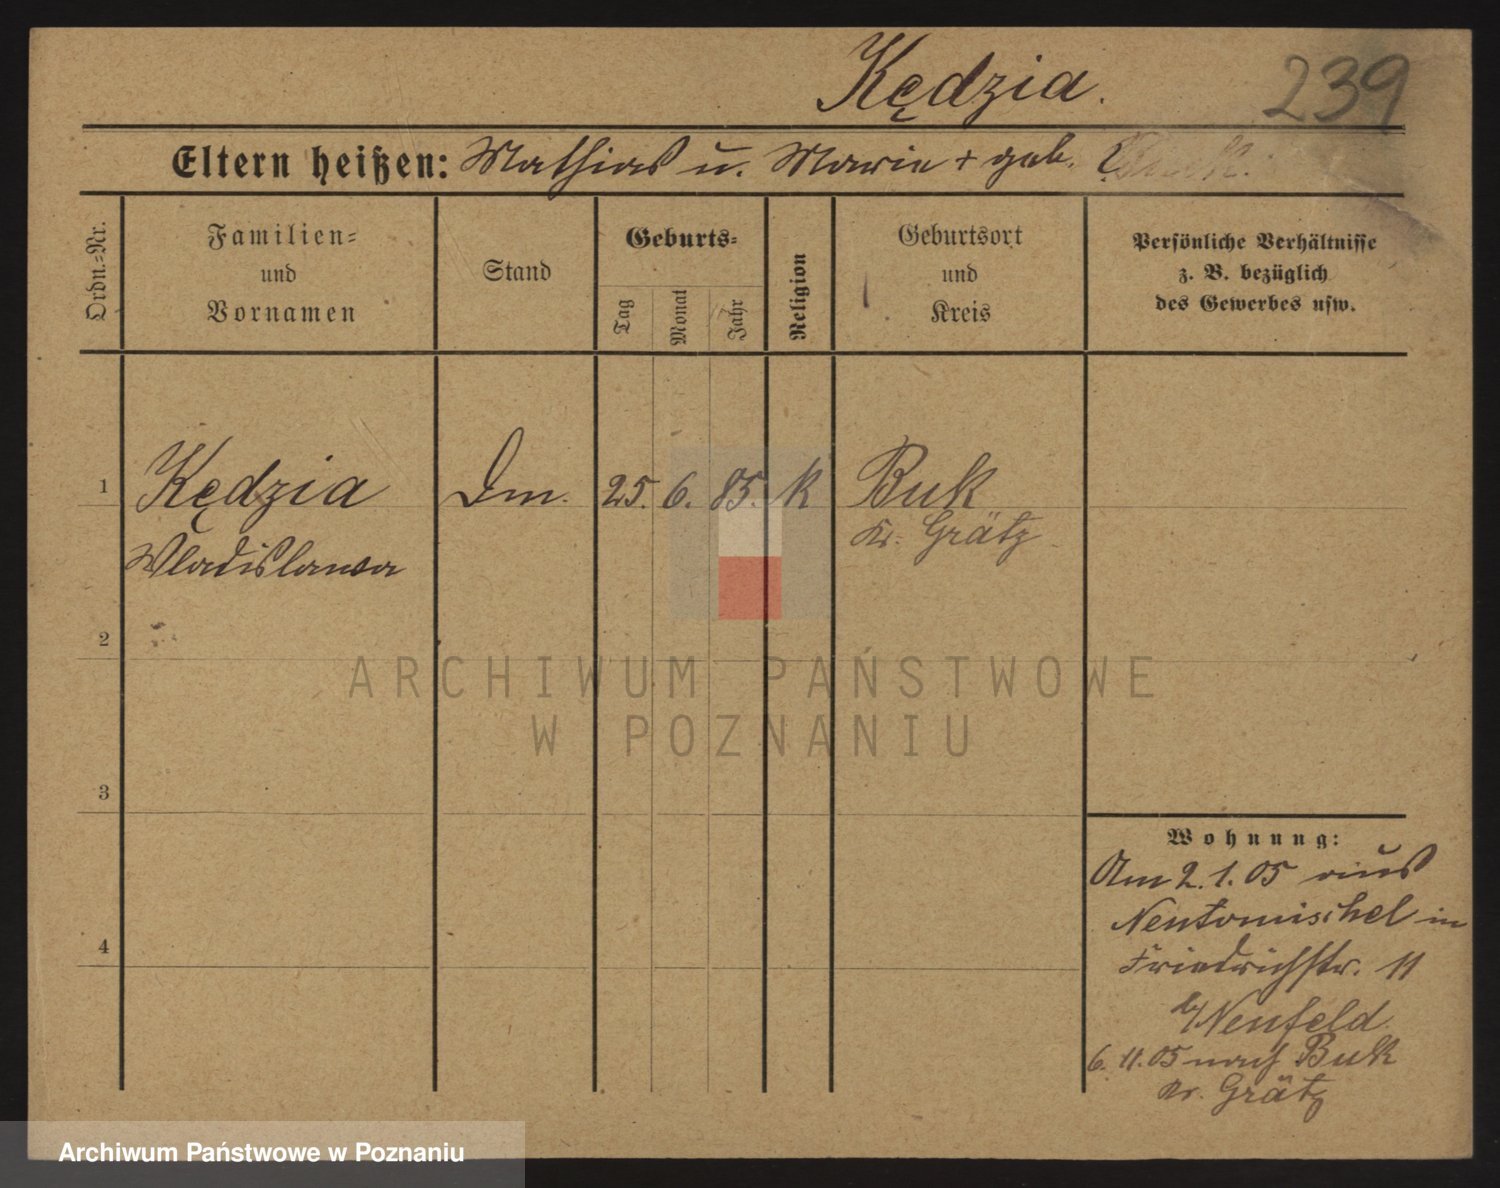 Kędzia.
239
Eltern heißen: Mathias u. Marie + geb.
Ordn.-Nr.
Familien-
und
Vornamen
Stand
Geburts-
Tag
Monat
Jahr
Religion
Geburtsort
und
Kreis
Persönliche Verhältnisse
z. B. bezüglich
des Gewerbes usw.
1 Kędzia Dm. 25. 6. 85. k Buk
Kr. Grätz
Wladislawa
2
3
4
Wohnung:
Am 2.1.05 aus
Neutomischel in
Friedrichstr. 11
b/Neufeld
6.11.05 nach Buk
Kr. Grätz
ARCHIWUM PAŃSTWOWE
W POZNANIU
Archiwum Państwowe w Poznaniu